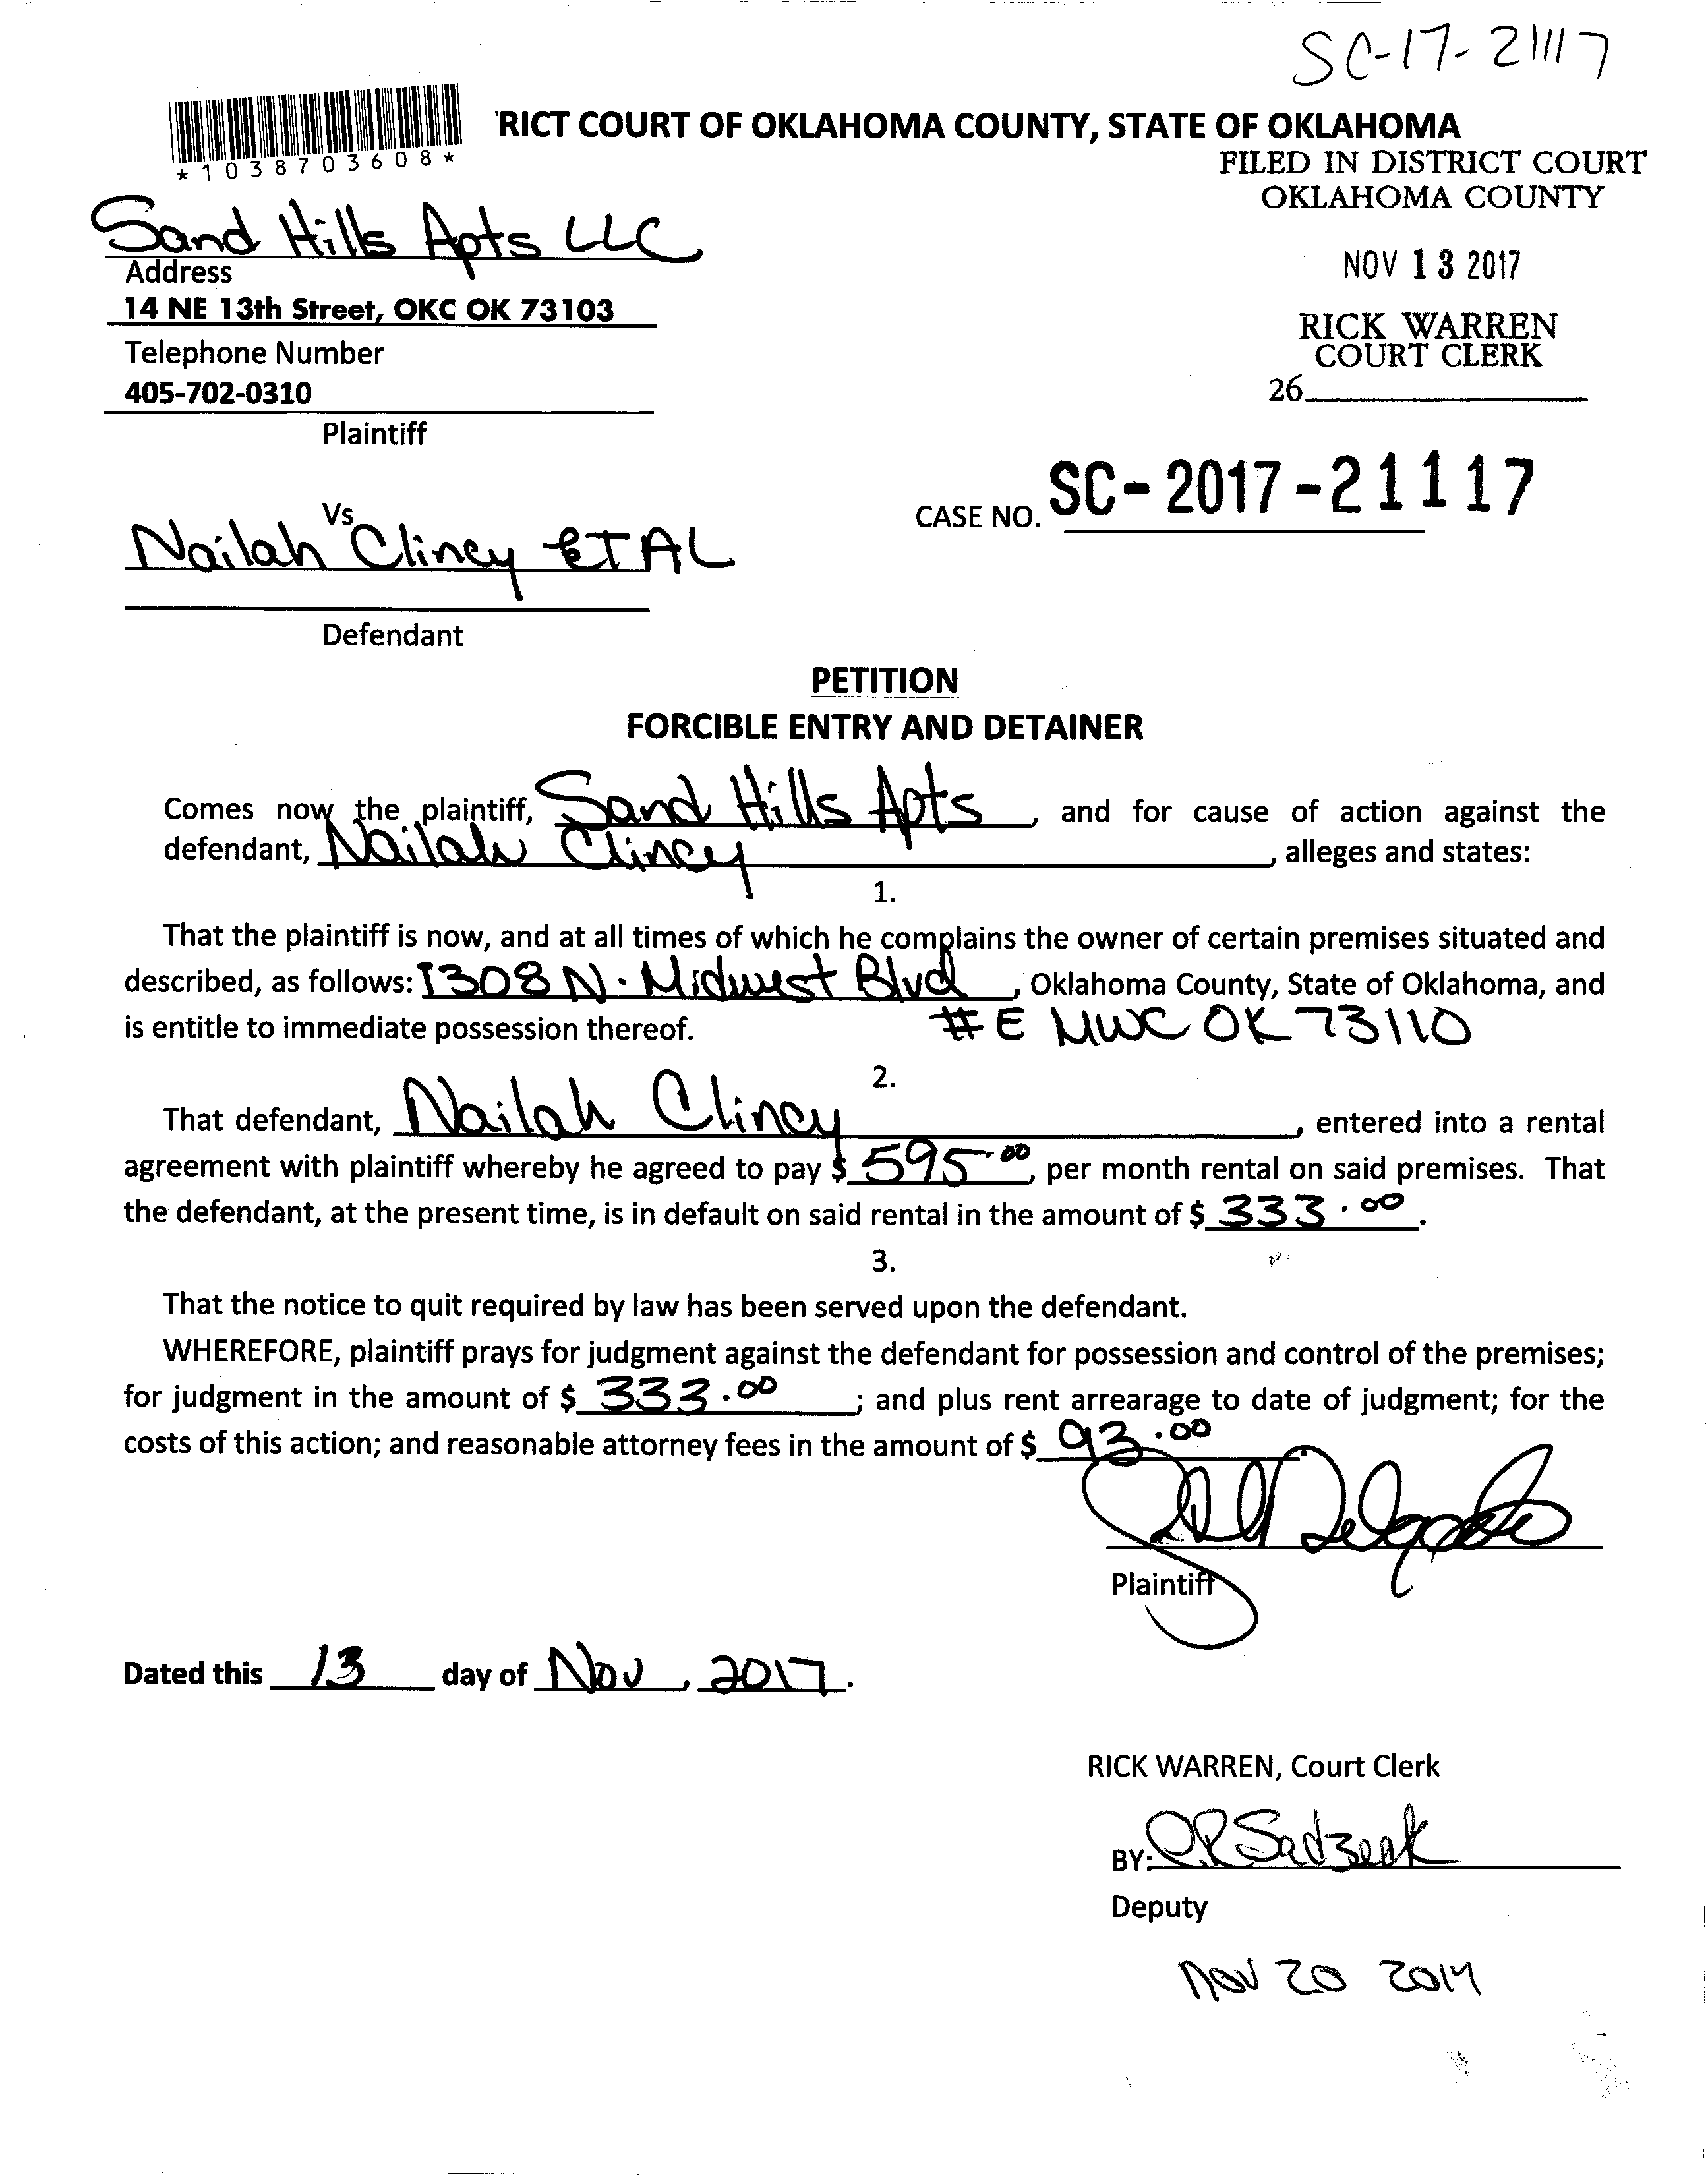 SC-17-21117
'RICT COURT OF OKLAHOMA COUNTY, STATE OF OKLAHOMA
*1038703608*
FILED IN DISTRICT COURT
OKLAHOMA COUNTY
Sand Hills Apts LLC
Address
NOV 13 2017
14 NE 13th Street, OKC OK 73103
RICK WARREN
COURT CLERK
Telephone Number
405-702-0310
26
Plaintiff
Vs
CASE NO. SC-2017-21117
Nailah Clincy ET AL
Defendant
PETITION
FORCIBLE ENTRY AND DETAINER
Comes now the plaintiff, Sand Hills Apts, and for cause of action against the
defendant, Nailah Clincy, alleges and states:
1.
That the plaintiff is now, and at all times of which he complains the owner of certain premises situated and
described, as follows: 1308 N. Midwest Blvd, Oklahoma County, State of Oklahoma, and
is entitle to immediate possession thereof. #E MWC OK 73110
2.
That defendant, Nailah Clincy, entered into a rental
agreement with plaintiff whereby he agreed to pay $ 595.00, per month rental on said premises. That
the defendant, at the present time, is in default on said rental in the amount of $ 333.00.
3.
That the notice to quit required by law has been served upon the defendant.
WHEREFORE, plaintiff prays for judgment against the defendant for possession and control of the premises;
for judgment in the amount of $ 333.00; and plus rent arrearage to date of judgment; for the
costs of this action; and reasonable attorney fees in the amount of $ 93.00.
Delgado
Plaintiff
Dated this 13 day of Nov, 2017.
RICK WARREN, Court Clerk
BY:
Deputy
Nov 20 2017